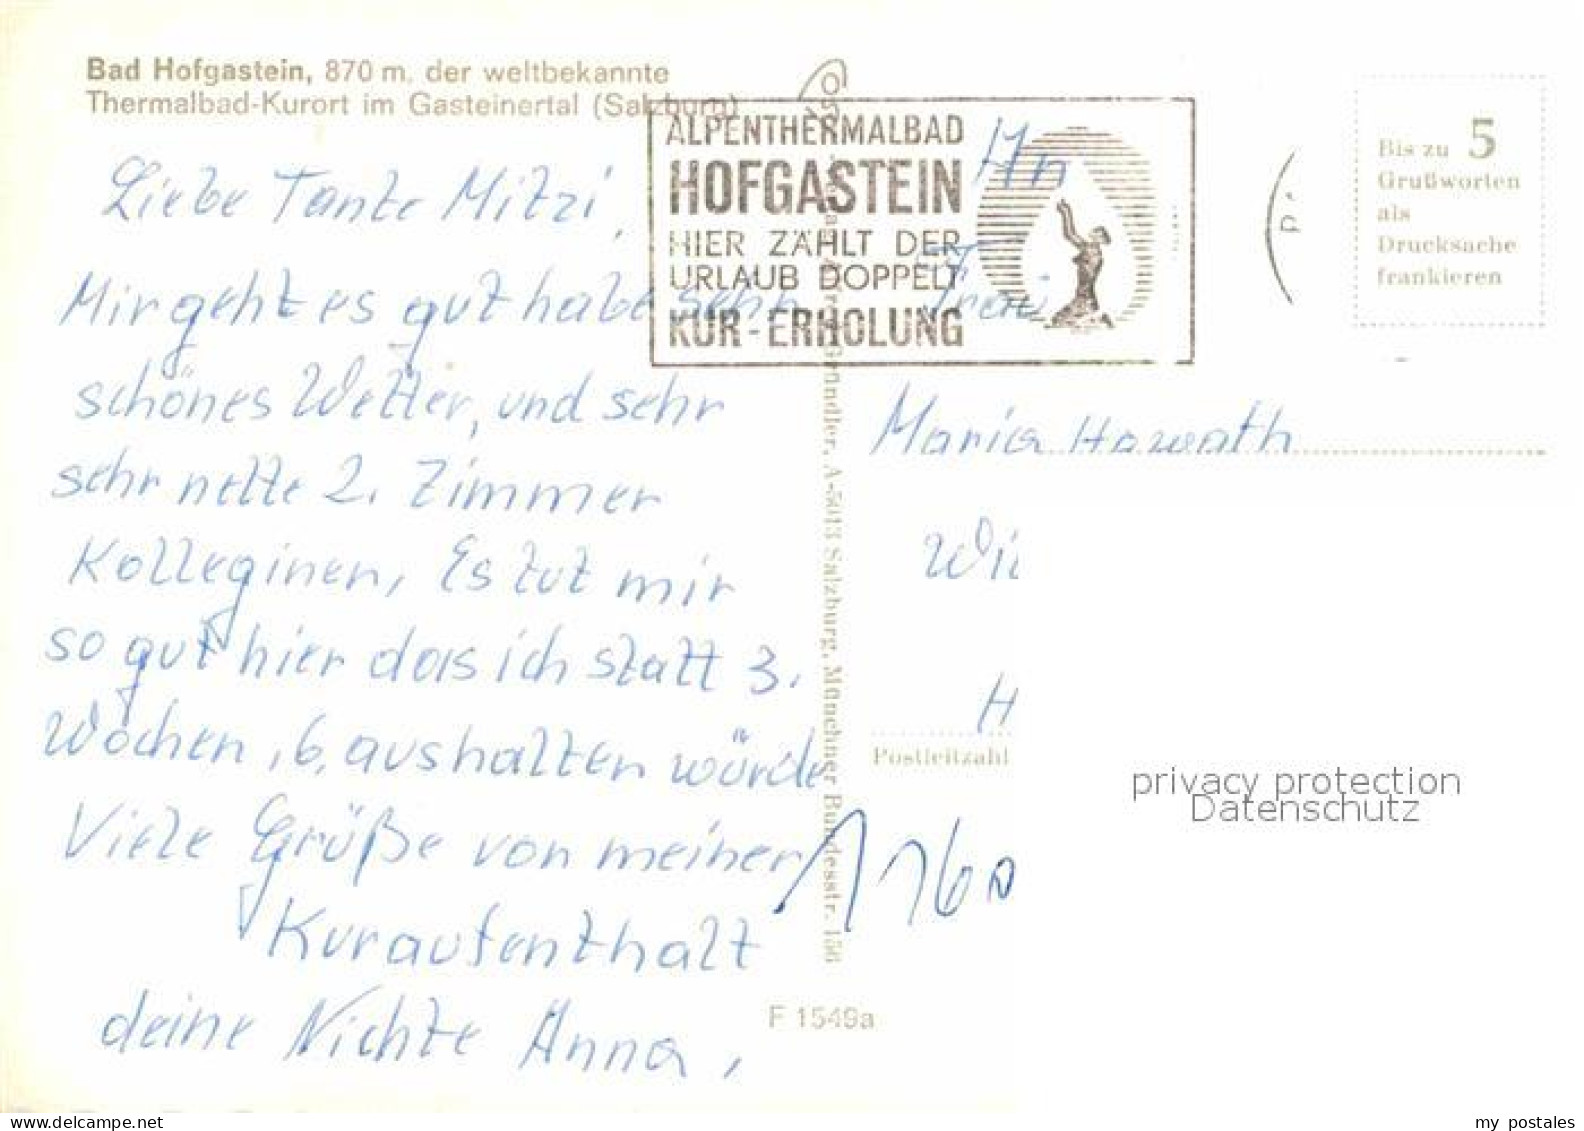 Bad Hofgastein, 870 m. der weltbekannte
Thermalbad-Kurort im Gasteinertal (Salzburg)
Liebe Tante Mitzi,
Mir geht es gut habe sehr
schönes Wetter, und sehr
sehr nette 2. Zimmer
Kolleginen, Es tut mir
so gut hier das ich statt 3.
Wochen, 6, aushalten würde
Viele Grüße von meiner
Kuraufenthalt
deine Nichte Anna,
ALPENTHERMALBAD
HOFGASTEIN
HIER ZÄHLT DER
URLAUB DOPPELT
KUR-ERHOLUNG
Bis zu 5
Grußworten
als
Drucksache
frankieren
An
Frau
Maria Howath
Wi
H
Postleitzahl
1160
Gründler, A-5013 Salzburg, Münchner Bundesstr. 156
F 1549a
privacy protection
Datenschutz
my postales